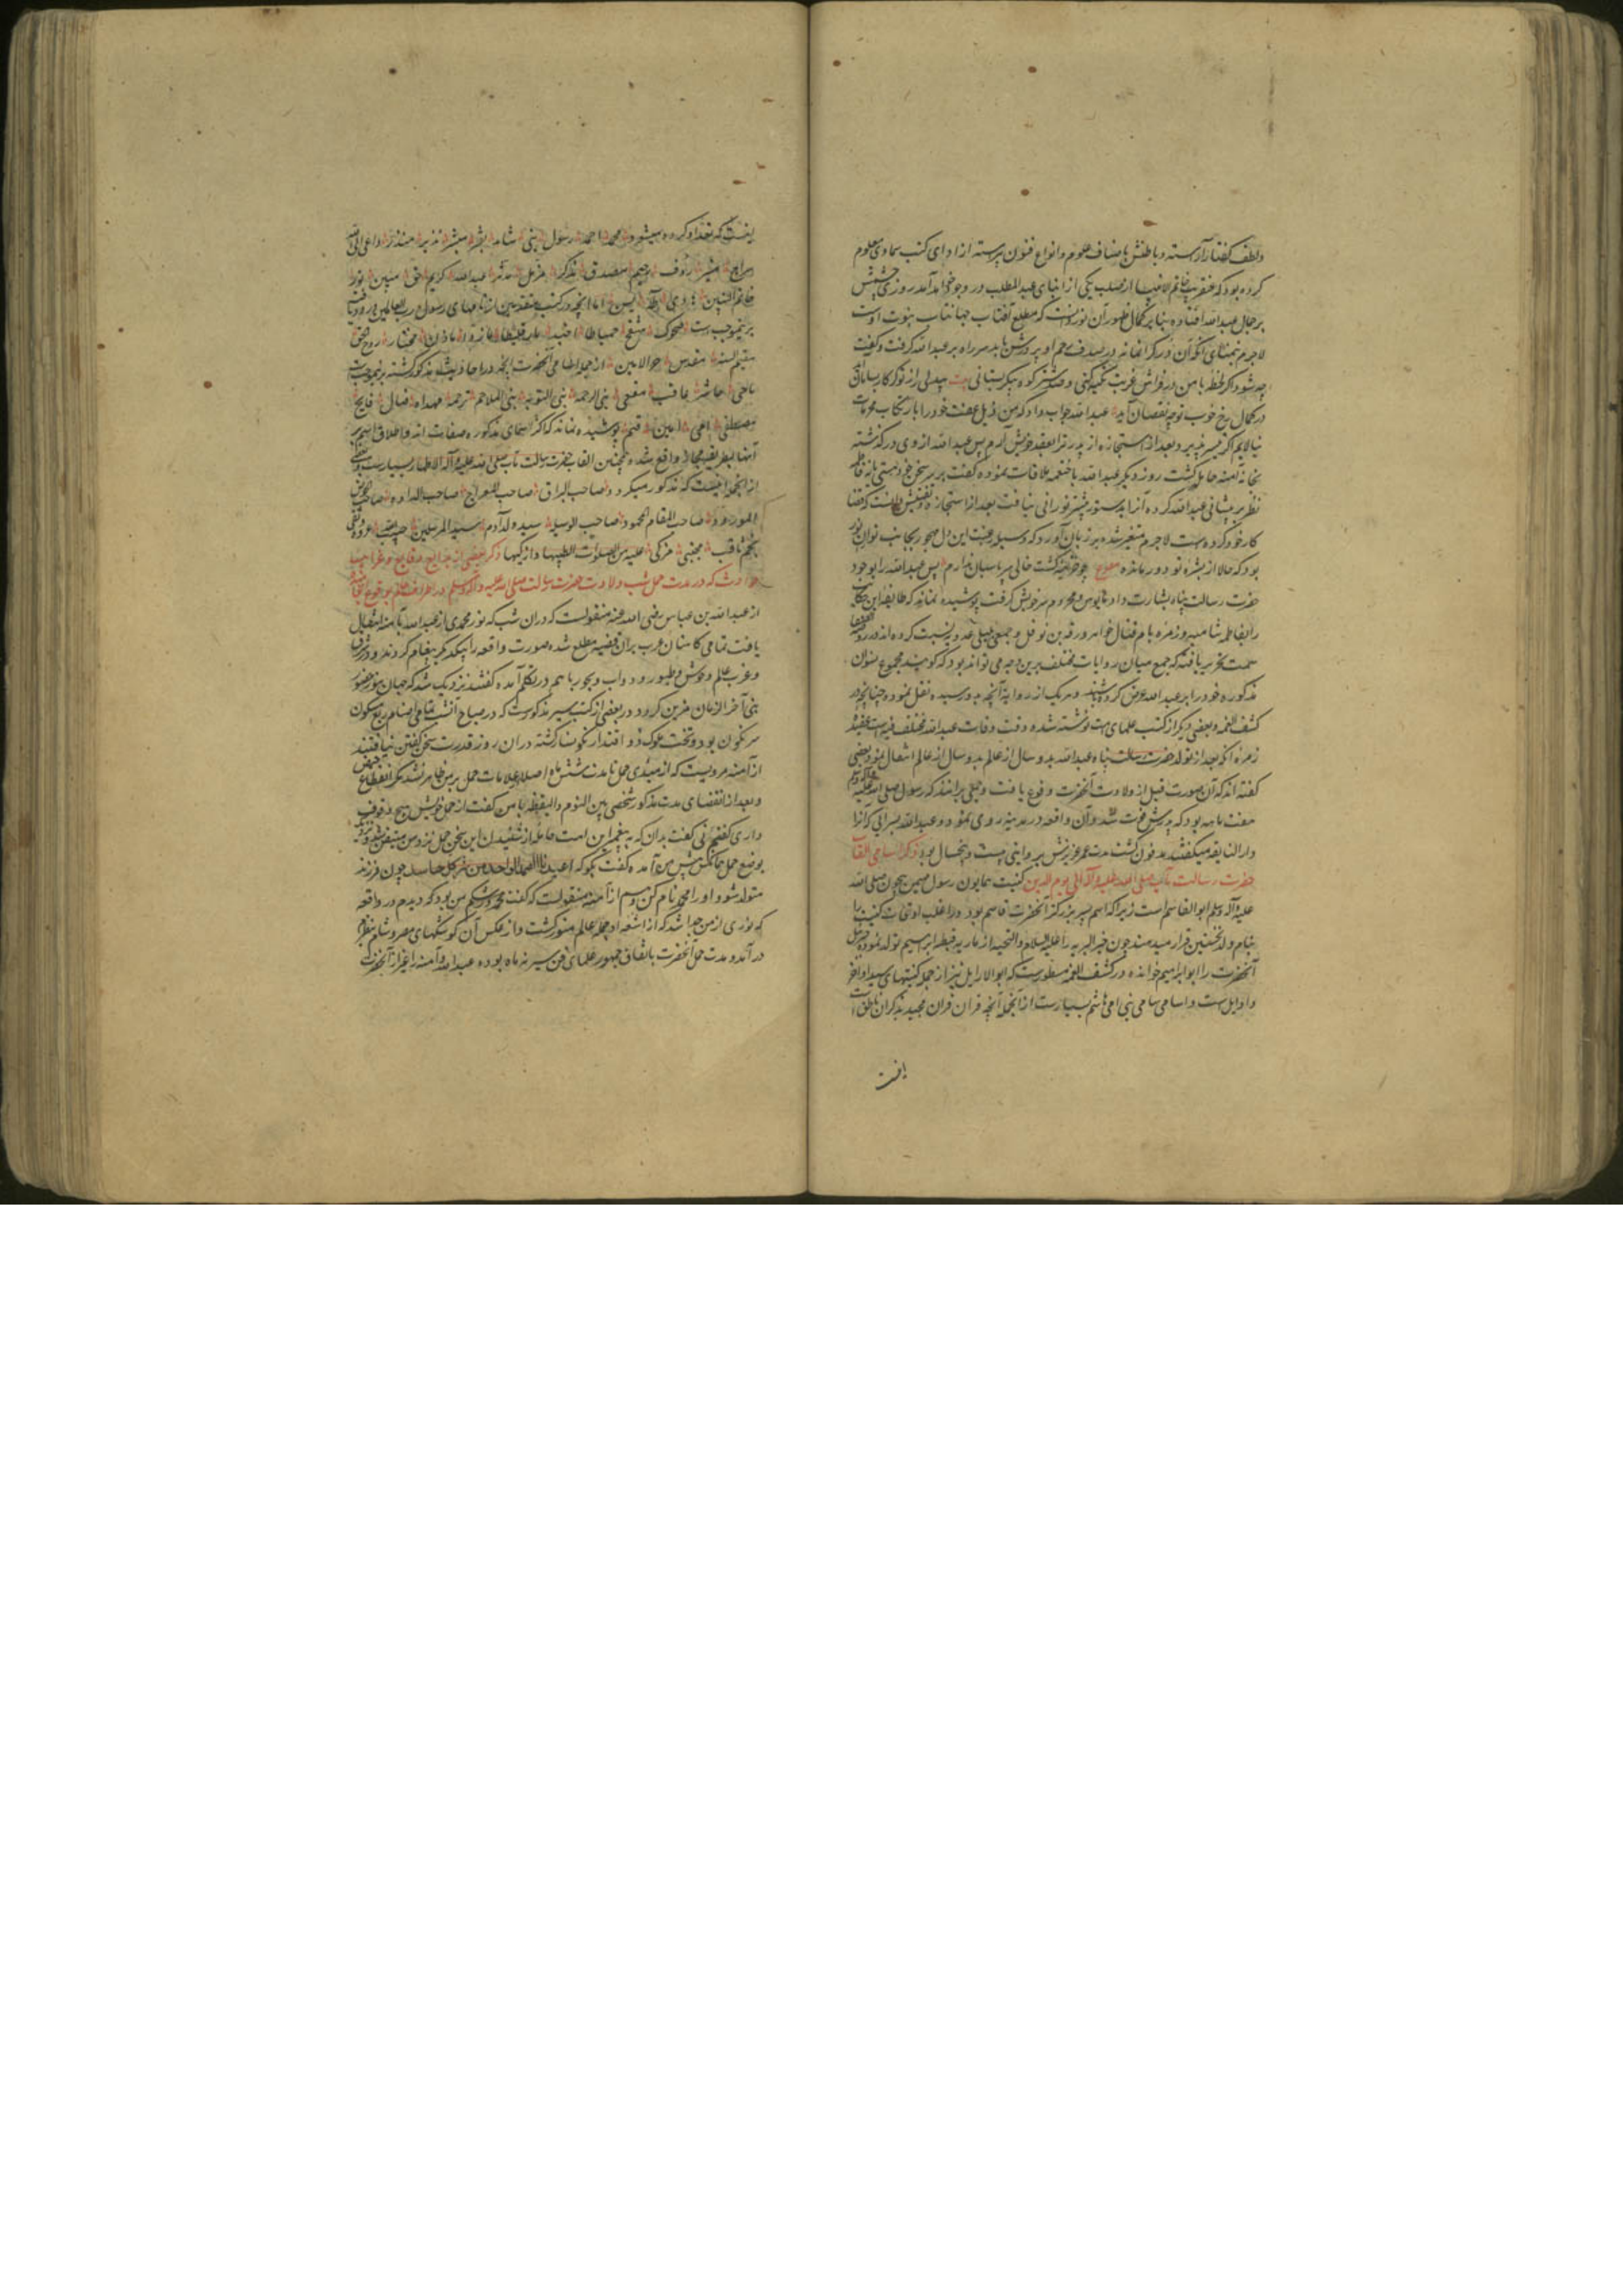 ولطف گفتار آراسته و باطنش باصناف علوم وانواع فنون پیراسته از ادای کتب سماوی معلوم
کرده بود که عنقریب خاتم الانبیا از صلب یکی از ابنای عبد المطلب در وجود خواهد آمد روزی چشمش
بر جمال عبدالله افتاده بنابر کمال ظهور آن نور دانست که مطلع آفتاب جهانتاب نبوت اوست
لاجرم بتمنای آنکه آن در گرانمایه در صدف رحم او پرورش یابد سر راه بر عبدالله گرفت و گفت
چه شود اگر لحظه با من در فراش قربت تکیه کنی و صد شتر کوه پیکر بستانی بیت بیدلی از تو گر کار بسامان
در کمال رخ خوب تو چه نقصان آید عبدالله جواب داد که من ذیل عفت خود را بارتکاب محرمات
نیالایم اگر میسر پذیرد بعد از استجازه از پدر ترا بعقد خویش آرم پس عبدالله از وی درگذشته
بخانه آمنه حامل گشت روز دیگر عبدالله با خثعمه ملاقات نموده گفت بر سر سخن خود هستی یا نه فاطمه
نظر بر پیشانی عبدالله کرده آنرا بدستور پیشتر نورانی نیافت بعد از استجازه و تفتیش دانست که قضا
کار خود کرده است لاجرم متغیر شده بر زبان آورد که وسیله رغبت این دل مهجور بجانب تو آن نور
بود که حالا از بشره تو دور مانده مصرع چو خزینه گشت خالی سر پاسبان ندارم پس عبدالله را بوجود
حضرت رسالت پناه بشارت داد و مایوس و محروم سر خویش گرفت پوشیده نماند که طایفه این حکایت
را بفاطمه شامیه و زمره بام قتال خواهر ورقه بن نوفل و جمعی بلیلی عدویه نسبت کرده اند و در روضة الصفا
سمت تحریر یافته که جمع میان روایات مختلف برین وجه می تواند بود که گویند مجموع نسوان
مذکوره خود را بر عبدالله عرض کرده باشند و هر یک از رواة آنچه بدو رسیده نقل نموده و چنانچه در
کشف الغمه و بعضی دیگر از کتب علمای امت نوشته شده وقت وفات عبدالله مختلف فیه است عقیده
زمره آنکه بعد از تولد حضرت رسالت پناه عبدالله بدو سال از عالم انتقال نمود و بعضی
گفته اند که آن صورت قبل از ولادت آنحضرت وقوع یافت و جمعی برانند که رسول صلی الله علیه وآله وسلم
هفت ماهه بود که پدرش فوت شد و آن واقعه در مدینه روی نمود و عبدالله بسرایی که آنرا
دار النابغه میگفتند مدفون گشت مدت عمر عزیزش بروایتی بیست و پنج سال بود ذکر اسامی و القاب
حضرت رسالت مآب صلی الله علیه وآله الی یوم الدین کنیت همایون رسول مهیمن بیچون صلی الله
علیه وآله وسلم ابو القاسم است زیرا که اسم پسر بزرگتر آنحضرت قاسم بود و در اغلب اوقات کنیت را
بنام ولد نخستین قرار میدهند چون خیر البریه را علیه السلام والتحیه از ماریه قبطیه ابراهیم تولد نمود جبرئیل
آنحضرت را ابو ابراهیم خوانده و در کشف الغمه مسطور است که ابو الارامل نیز از جمله کنیتهای سید اواخر
و اوایل است و اسامی سامی نبی امی هاشم بسیار است از آنجمله آنچه قرآن مجید بذکر آن ناطق است
اینست که تعداد کرده میشود محمد احمد رسول نبی شاهد بشیر مبشر نذیر منذر داعی الی الله
سراج منیر رؤف رحیم مصدق مذکر مزمل مدثر عبدالله کریم حق مبین نور
خاتم النبیین طه یس اما آنچه در کتب متقدمین از نامهای رسول رب العالمین ورود یافته
برینموجب است ضحوک مشفح حمیاطا احید بارقلیطا ماذماذ مختار روح الحق
مقیم السنه مقدس حرز الامین از جمله اسامی آنحضرت آنچه در احادیث مذکور گشته برینموجب است
ماحی حاشر عاقب مقفی نبی الرحمه نبی التوبه نبی الملاحم رحمة مهداه قتال فاتح
مصطفی امی امین قثم پوشیده نماند که اکثر اسمای مذکوره صفات اند و اطلاق اسم بر
آنها بطریق مجاز واقع شده و همچنین القاب حضرت رسالت مآب صلی الله علیه وآله الاطهار بسیار است و بعضی
از آنجمله اینست که مذکور میگردد صاحب البراق صاحب المعراج صاحب الهراوه صاحب الحوض
المورود صاحب المقام المحمود صاحب الوسیله سید ولد آدم سید المرسلین حبیب الله عروه وثقی
نجم ثاقب مجتبی مزکی علیه من الصلوات اطیبها و ازکیها ذکر بعضی از بدایع وقایع و غرایب
حوادث که در مدت حمل و شب ولادت حضرت رسالت صلی الله علیه وآله وسلم در اطراف عالم بوقوع انجامید
از عبدالله بن عباس رضی الله عنه منقولست که در آن شب که نور محمدی از عبدالله بآمنه انتقال
یافت تمامی کاهنان عرب بران قضیه مطلع شده صورت واقعه را بیکدیگر پیغام کردند و در شرق
و غرب عالم وحوش و طیور و دواب و بحور با هم در تکلم آمده گفتند نزدیک شد که جهان بنور حضور
نبی آخر الزمان مزین گردد و در بعضی از کتب سیر مذکورست که در صباح آنشب تمامی اصنام ربع مسکون
سرنگون بود و تخت ملوک ذو اقتدار نگونسار گشته در آن روز قدرت سخن گفتن نیافتند
از آمنه مرویست که از مبدای حمل تا مدت شش ماه اصلا علامات حمل بر من ظاهر نشد مگر انقطاع حیض
و بعد از انقضای مدت مذکور شخصی بین النوم والیقظه با من گفت از حمل خویش هیچ وقوف
داری گفتم نی گفت بدان که به پیغمبر این امت حامل از شنیدن این سخن حمل نزد من متیقن شد و نزدیک
بوضع حمل همانکس پیش من آمده گفت بگو که اعیذه بالله الواحد من شر کل حاسد چون فرزند
متولد شود او را محمد نام کن و هم از آمنه منقولست که گفت محمد در شکم من بود که دیدم در واقعه
که نوری از من جدا شد که از اشعه او جمله عالم منور گشت و از عکس آن کوشکهای مصر و شام بنظرم
در آمد و مدت حمل آنحضرت باتفاق جمهور علمای فن سیر نه ماه بوده عبدالله و آمنه را غیر از آنحضرت